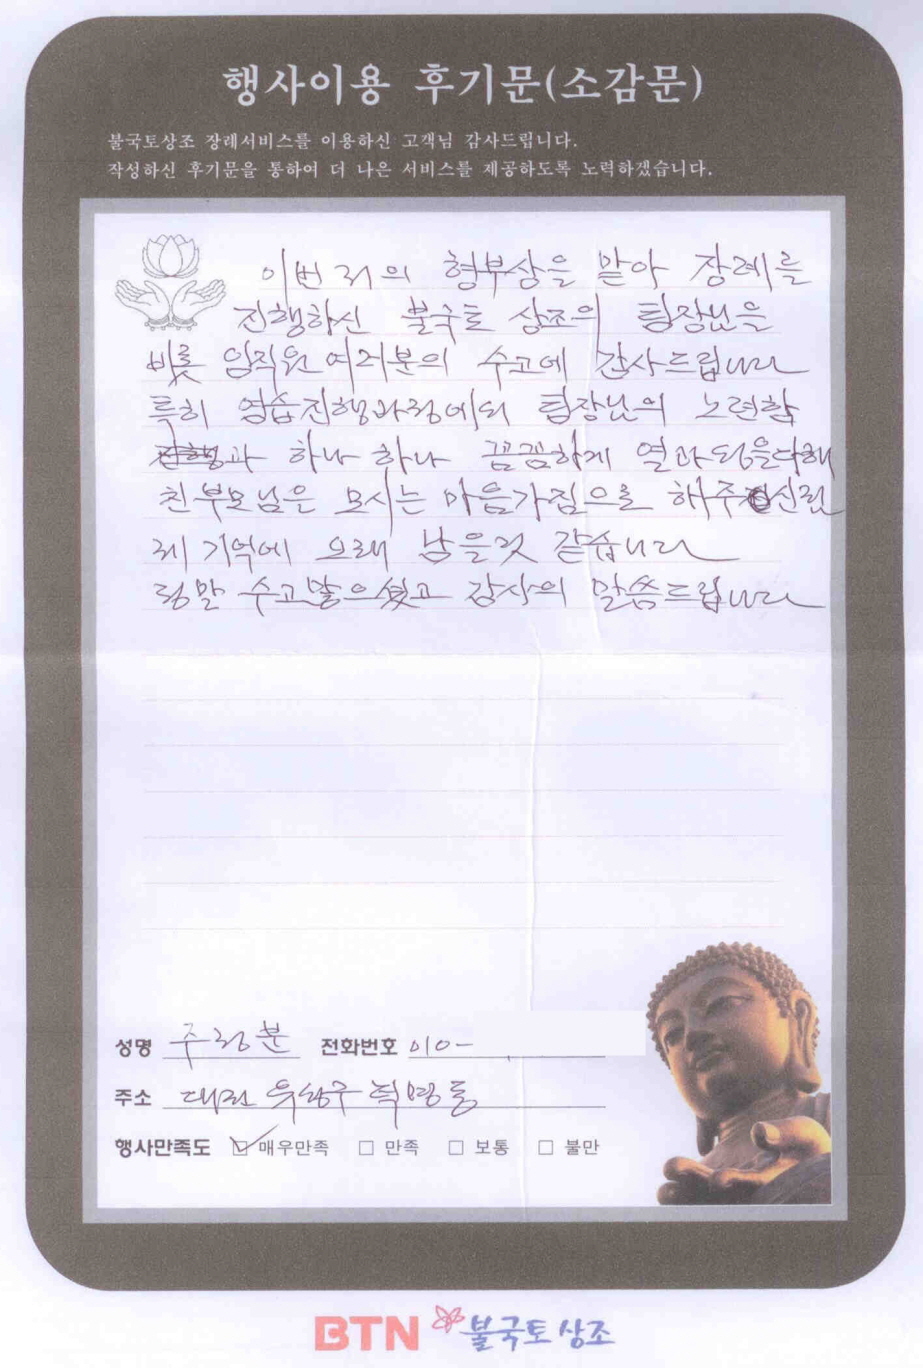 행사이용 후기문(소감문)
불국토상조 장례서비스를 이용하신 고객님 감사드립니다.
작성하신 후기문을 통하여 더 나은 서비스를 제공하도록 노력하겠습니다.
이번 저의 형부상을 맡아 장례를
진행하신 불국토 상조의 팀장님을
비롯 임직원 여러분의 수고에 감사드립니다
특히 염습진행과정에서 팀장님의 노련함
과 하나 하나 꼼꼼하게 열과 성을다해
친부모님을 모시는 마음가짐으로 해주신
제 기억에 오래 남을것 같습니다
정말 수고많으셨고 감사의 말씀드립니다
성명 주정분 전화번호 010-
주소 대전 유성구
행사만족도 ☑ 매우만족 □ 만족 □ 보통 □ 불만
BTN 불국토상조